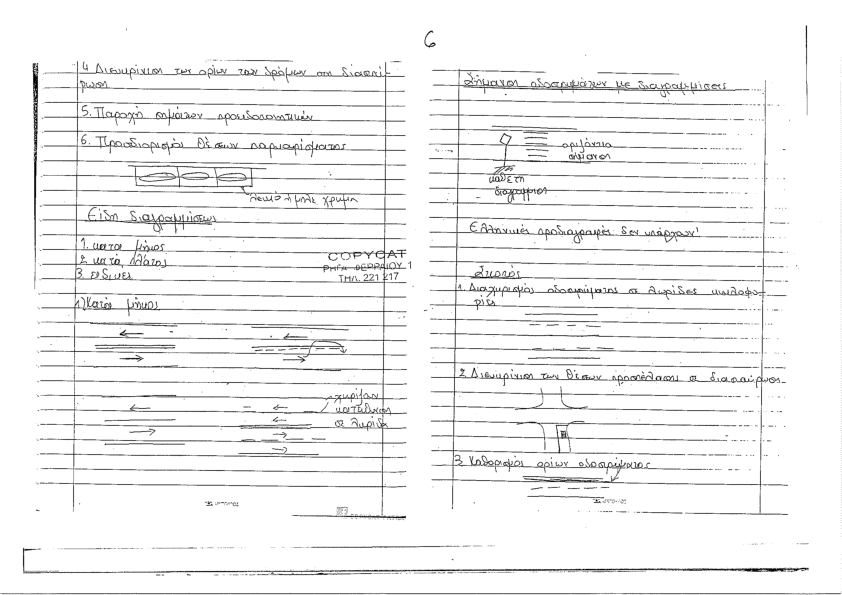 6
4 Διευκρίνιση των ορίων των δρόμων στη διασταύ-
ρωση
5. Παροχή σημάτων προειδοποιητικών
6. Προσδιορισμός θέσεων παρκαρίσματος
λευκό ή μπλε χρώμα
Είδη διαγραμμίσεων
1. κατά μήκος
2. κατά πλάτος
3. ειδικές
COPYCAT
ΡΗΓΑ ΦΕΡΡΑΙΟΥ 1
ΤΗΛ. 221 217
1) Κατά μήκος
χωρίζαν
κατεύθυνση
σε λωρίδα
Σήμανση οδοστρωμάτων με διαγραμμίσεις
οριζόντια
σήμανση
κάθετη
διαγράμμιση
Ελληνικές προδιαγραφές δεν υπάρχουν!
Σκοπός
1. Διαχωρισμός οδοστρώματος σε λωρίδες κυκλοφο-
ρίας
2. Διευκρίνιση των θέσεων προσπέλασης σε διασταύρωση
3. Καθορισμός ορίων οδοστρώματος